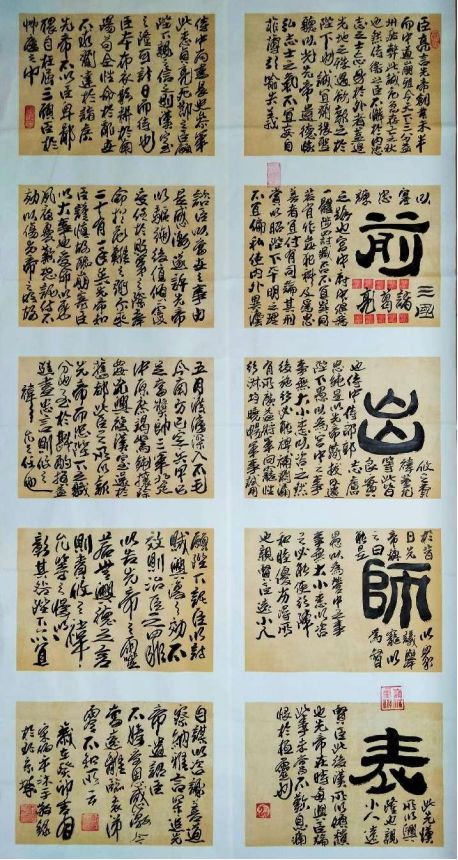 臣亮言先帝創業未半
而中道崩殂今天下三分益
州疲弊此誠危急存亡之秋
也然侍衛之臣不懈於內忠
志之士忘身於外者蓋追
先帝之殊遇欲報之於
陛下也誠宜開張聖
聽以光先帝遺德恢
弘志士之氣不宜妄自
菲薄引喻失義
以塞
忠
諫
前
三國
諸葛亮
之路也宮中府中俱為
一體陟罰臧否不宜異同
若有作姦犯科及為忠
善者宜付有司論其刑
賞以昭陛下平明之理
不宜偏私使內外異法
出
也侍中侍郎郭
攸之費
禕董允
等此皆
良實
志慮
忠純是以先帝簡拔以遺
陛下愚以為宮中之事
事無大小悉以咨之然
後施行必能裨補闕漏
有所廣益將軍向寵性
行淑均曉暢軍事試用
師
於昔
日先
帝稱
之曰
能是
以眾
議舉
寵以
為督
愚以為營中之事
事無大小悉以咨
之必能使行陣
和睦優劣得所
也親賢臣遠小人
表
此先漢
所以興
隆也親
小人遠
賢臣此後漢所以傾頹
也先帝在時每與臣論
此事未嘗不歎息痛
恨於桓靈也
侍中尚書長史參軍
此悉貞亮死節之臣願
陛下親之信之則漢室
之隆可計日而待也
臣本布衣躬耕於南
陽苟全性命於亂世
不求聞達於諸侯
先帝不以臣卑鄙
猥自枉屈三顧臣於
草廬之中
諮臣以當世之事由
是感激遂許先帝
以驅馳後值傾覆
受任於敗軍之際奉
命於危難之間爾來
二十有一年矣先帝知
臣謹慎故臨崩寄臣
以大事也受命以來
夙夜憂歎恐託付不
效以傷先帝之明故
五月渡瀘深入不毛
今南方已定兵甲已
足當獎帥三軍北定
中原庶竭駑鈍攘除
姦凶興復漢室還於
舊都此臣之所以報
先帝而忠陛下之職
分也至於斟酌損益
進盡忠言則攸之
禕允之任也
願陛下託臣以討
賊興復之效不
效則治臣之罪
以告先帝之靈
若無興德之言
則責攸之禕
允等之慢以
彰其咎陛下亦宜
自謀以咨諏善道
察納雅言深追先
帝遺詔臣
不勝受恩感激今
當遠離臨表涕
零不知所云
歲在癸卯
於北京